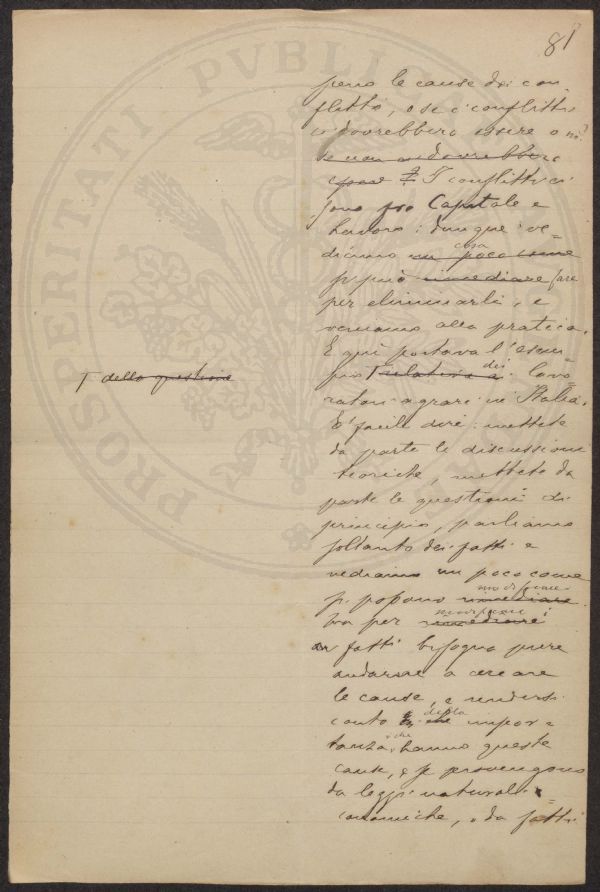 81
sieno le cause dei con
flitti, o se i conflitti
ci dovrebbero essere o no.
se non ci dovrebbero
I conflitti ci
sono fra Capitale e
Lavoro: dunque ve=
diamo un poco come
cosa
si può rimediare fare
per eliminarli, e
veniamo alla pratica.
E qui portava l'esem
pio T relativo ai dei lavo=
T della questione
ratori agrari in Italia.
E' facile dire: mettete
da parte le discussioni
teoriche, mettete da
parte le questioni di
principio, parliamo
soltanto dei fatti e
vediamo un poco come
modificare
si possono rimediare
Ma per rimediare i
fatti bisogna pure
andarne a cercare
le cause, e rendersi
conto della impor=
tanza che hanno queste
cause, e se provengono
da leggi naturali
economiche, o da fatti
PROSPERITATI PVBLI